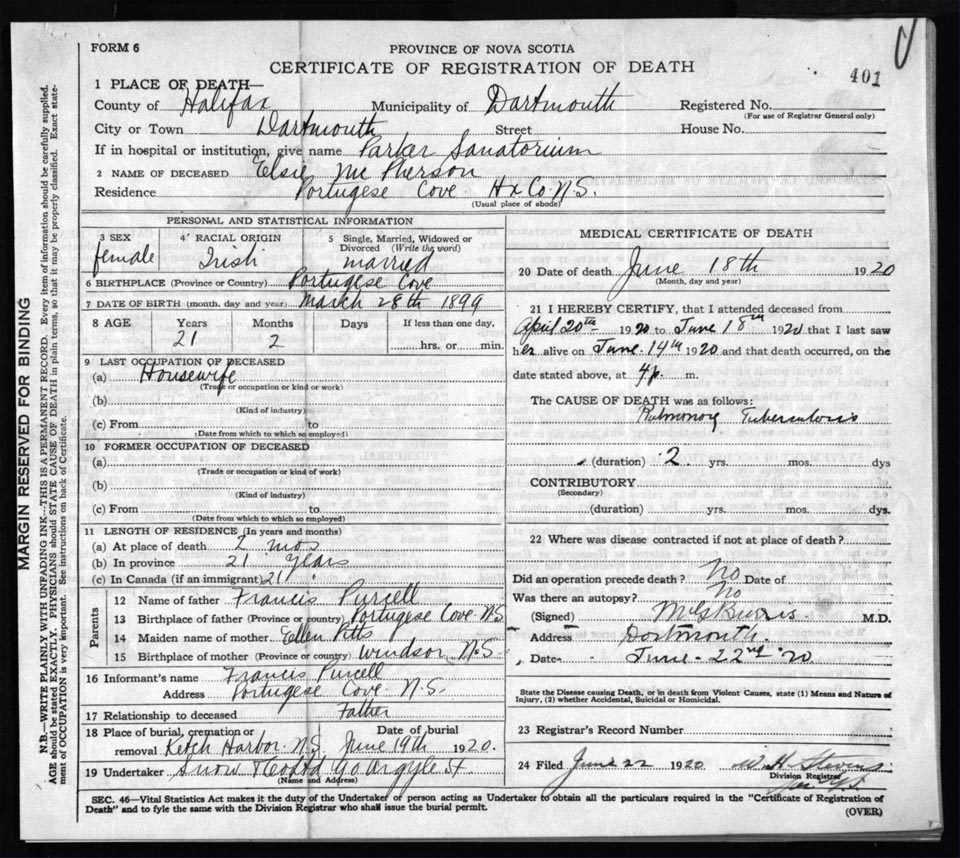 FORM 6
PROVINCE OF NOVA SCOTIA
CERTIFICATE OF REGISTRATION OF DEATH
401
1 PLACE OF DEATH—
County of Halifax Municipality of Dartmouth Registered No.
(For use of Registrar General only)
City or Town Dartmouth Street House No.
If in hospital or institution, give name Parker Sanatorium
2 NAME OF DECEASED Elsie McPherson
Residence Portugese Cove Hx Co. N.S.
(Usual place of abode)
PERSONAL AND STATISTICAL INFORMATION
3 SEX 4 RACIAL ORIGIN 5 Single, Married, Widowed or
Divorced (Write the word)
female Irish married
6 BIRTHPLACE (Province or Country) Portugese Cove
7 DATE OF BIRTH (month, day and year) March 28th 1899
8 AGE Years Months Days If less than one day,
21 2 hrs. or min.
9 LAST OCCUPATION OF DECEASED
(a) Housewife
(Trade or occupation or kind or work)
(b)
(Kind of industry)
(c) From to
(Date from which to which so employed)
10 FORMER OCCUPATION OF DECEASED
(a)
(Trade or occupation or kind of work)
(b)
(Kind of industry)
(c) From to
(Date from which to which so employed)
11 LENGTH OF RESIDENCE (In years and months)
(a) At place of death 2 mos
(b) In province 21 years
(c) In Canada (if an immigrant) 21
Parents
12 Name of father Francis Purcell
13 Birthplace of father (Province or country) Portugese Cove N.S.
14 Maiden name of mother Ellen Pitts
15 Birthplace of mother (Province or country) Windsor N.S.
16 Informant's name Francis Purcell
Address Portugese Cove N.S.
17 Relationship to deceased Father
18 Place of burial, cremation or removal Ketch Harbor N.S. Date of burial June 19th 1920.
19 Undertaker Snow & Co Ltd 90 Argyle St.
(Name and Address)
MEDICAL CERTIFICATE OF DEATH
20 Date of death June 18th 1920
(Month, day and year)
21 I HEREBY CERTIFY, that I attended deceased from
April 20th 1920 to June 18th 1920 that I last saw
her alive on June 14th 1920 and that death occurred, on the
date stated above, at 4p. m.
The CAUSE OF DEATH was as follows:
Pulmonary Tuberculosis
(duration) 2 yrs. mos. dys
CONTRIBUTORY
(Secondary)
(duration) yrs. mos. dys.
22 Where was disease contracted if not at place of death?
Did an operation precede death? No Date of
Was there an autopsy? No
(Signed) M.D.
Address Dartmouth.
Date June 22nd '20
State the Disease causing Death, or in death from Violent Causes, state (1) Means and Nature of
Injury, (2) whether Accidental, Suicidal or Homicidal.
23 Registrar's Record Number
24 Filed June 22 1920 W H Stevens
Division Registrar
SEC. 46—Vital Statistics Act makes it the duty of the Undertaker or person acting as Undertaker to obtain all the particulars required in the "Certificate of Registration of
Death" and to fyle the same with the Division Registrar who shall issue the burial permit.
(OVER)
MARGIN RESERVED FOR BINDING
N.B.—WRITE PLAINLY WITH UNFADING INK—THIS IS A PERMANENT RECORD. Every item of information should be carefully supplied.
AGE should be stated EXACTLY. PHYSICIANS should STATE CAUSE OF DEATH in plain terms, so that it may be properly classified. Exact state-
ment of OCCUPATION is very important. See instructions on back of Certificate.